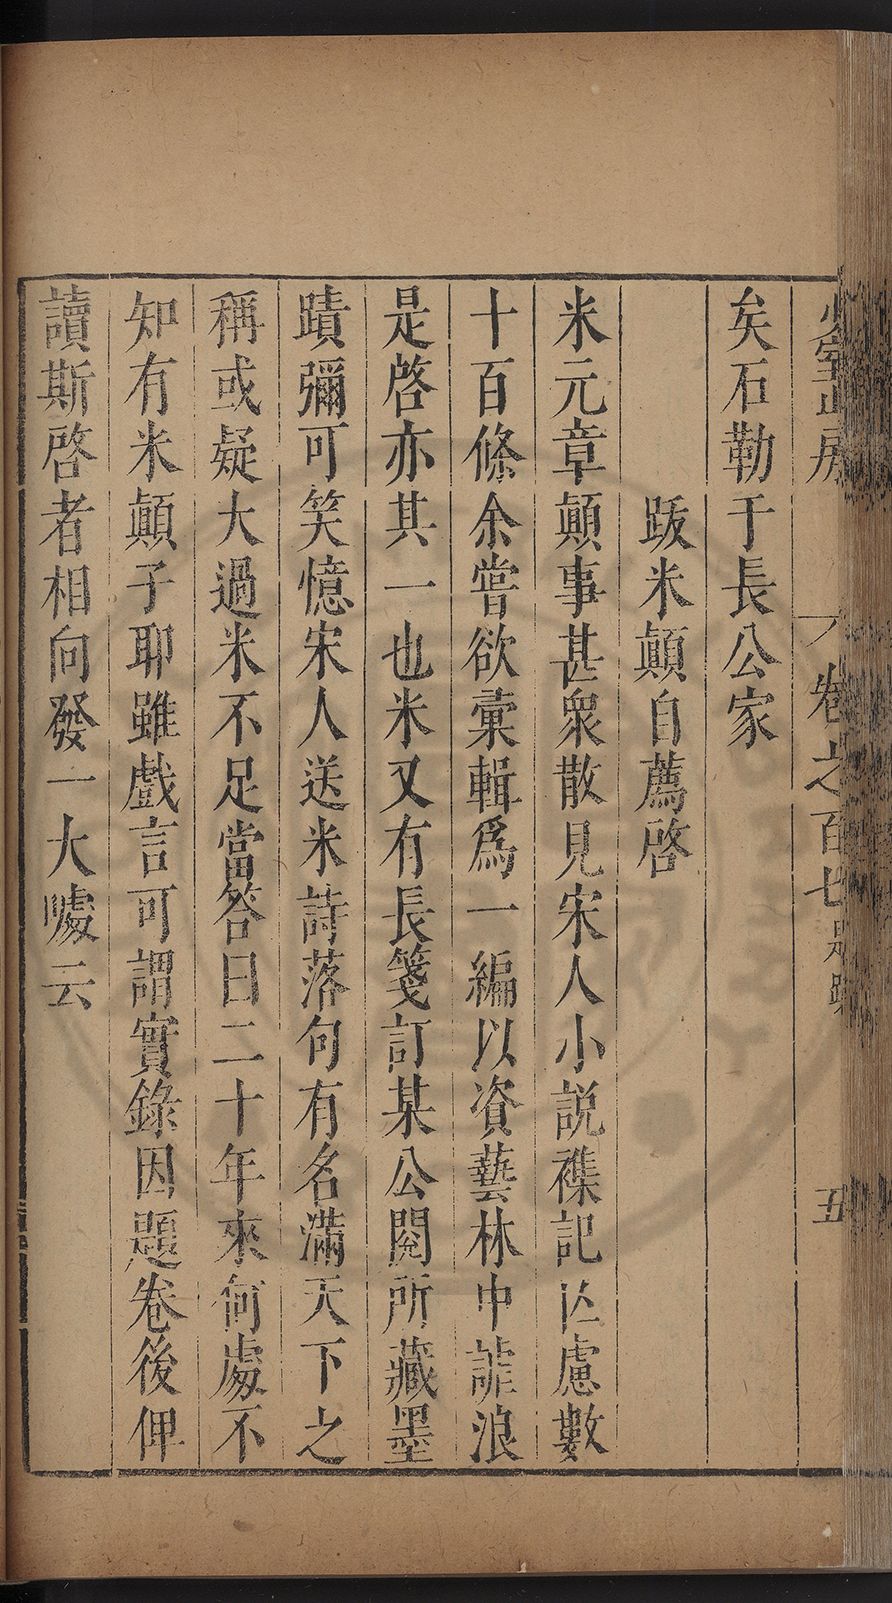 卷之百七 題跋 五
矣石勒于長公家
跋米顛自薦啓
米元章顛事甚衆散見宋人小說襍記亡慮數
十百條余嘗欲彙輯爲一編以資藝林中謔浪
是啓亦其一也米又有長箋訂某公閱所藏墨
蹟彌可笑憶宋人送米詩落句有名滿天下之
稱或疑大過米不足當答曰二十年來何處不
知有米顛子耶雖戲言可謂實錄因題卷後俾
讀斯啓者相向發一大噱云